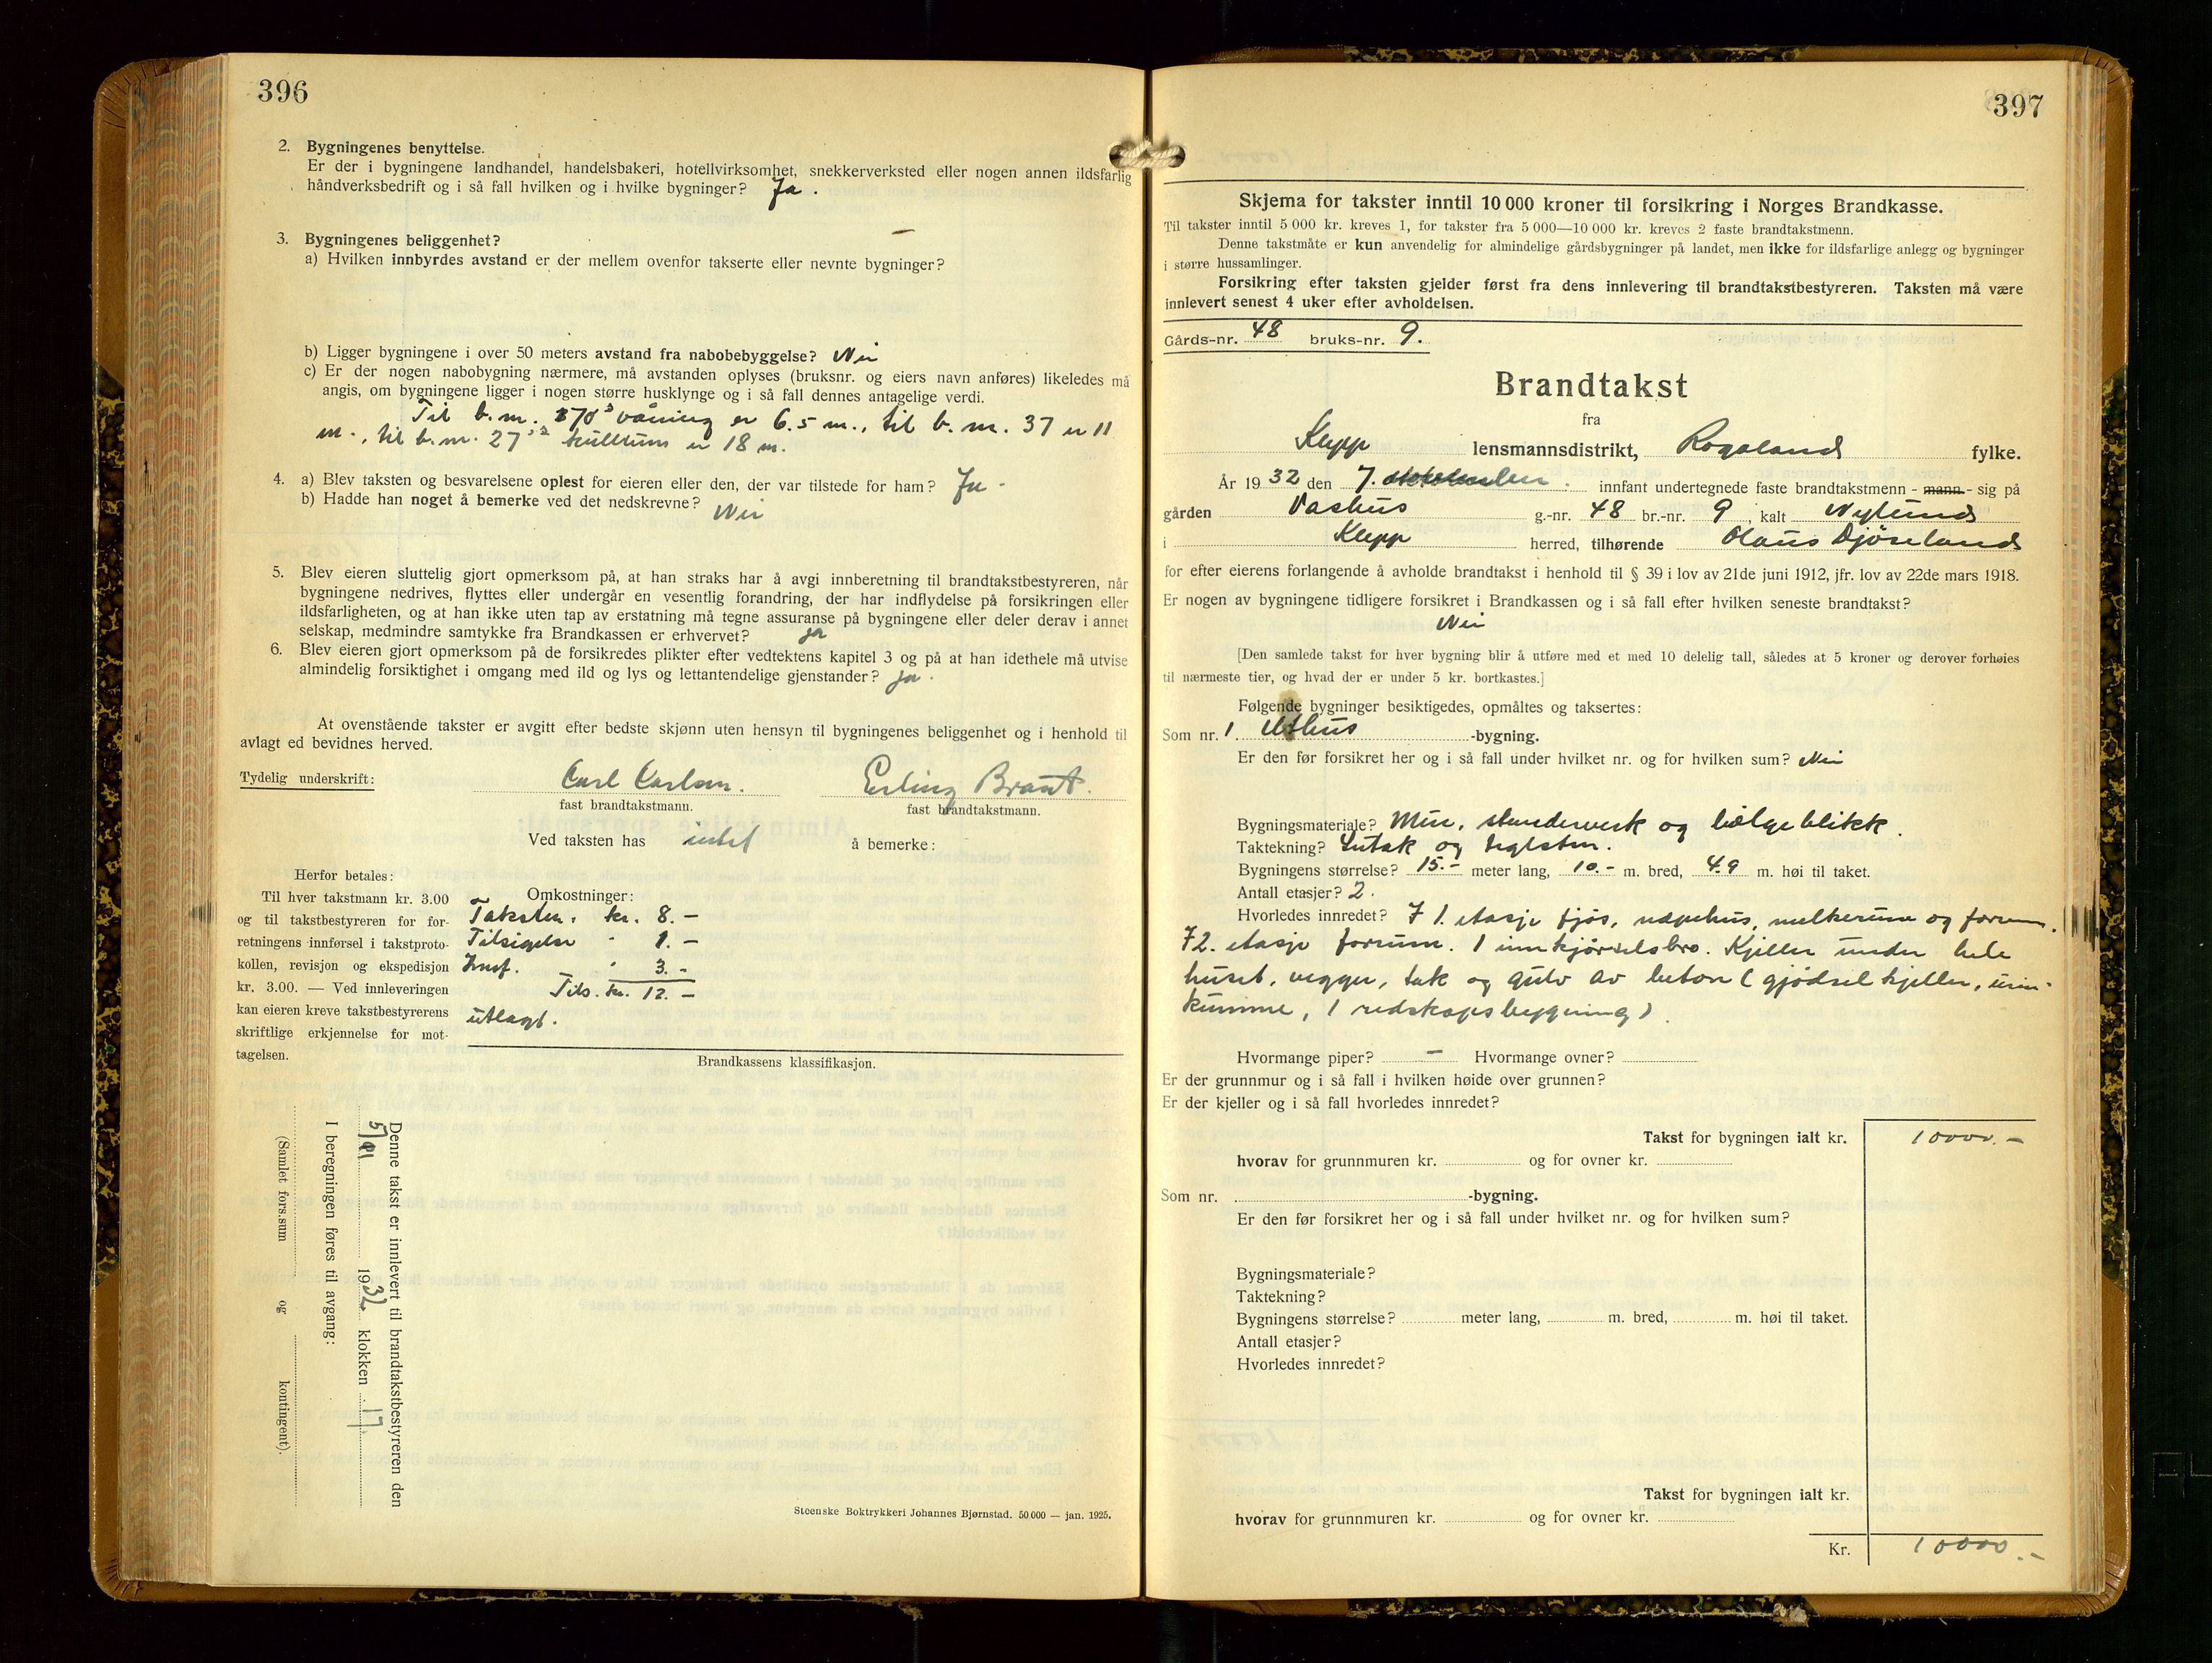 396
2. Bygningenes benyttelse.
Er der i bygningene landhandel, handelsbakeri, hotellvirksomhet, snekkerverksted eller nogen annen ildsfarlig
håndverksbedrift og i så fall hvilken og i hvilke bygninger? Ja.
3. Bygningenes beliggenhet?
a) Hvilken innbyrdes avstand er der mellem ovenfor takserte eller nevnte bygninger? —
b) Ligger bygningene i over 50 meters avstand fra nabobebyggelse? Nei
c) Er der nogen nabobygning nærmere, må avstanden oplyses (bruksnr. og eiers navn anføres) likeledes må
angis, om bygningene ligger i nogen større husklynge og i så fall dennes antagelige verdi.
Til b.m. våning er 6.5 m., til b.m. 37 er 11
m., til b.m. 27 er 18 m.
4. a) Blev taksten og besvarelsene oplest for eieren eller den, der var tilstede for ham? Ja -
b) Hadde han noget å bemerke ved det nedskrevne? Nei
5. Blev eieren sluttelig gjort opmerksom på, at han straks har å avgi innberetning til brandtakstbestyreren, når
bygningene nedrives, flyttes eller undergår en vesentlig forandring, der har indflydelse på forsikringen eller
ildsfarligheten, og at han ikke uten tap av erstatning må tegne assuranse på bygningene eller deler derav i annet
selskap, medmindre samtykke fra Brandkassen er erhvervet? ja
6. Blev eieren gjort opmerksom på de forsikredes plikter efter vedtektens kapitel 3 og på at han idethele må utvise
almindelig forsiktighet i omgang med ild og lys og lettantendelige gjenstander? ja.
At ovenstående takster er avgitt efter bedste skjønn uten hensyn til bygningenes beliggenhet og i henhold til
avlagt ed bevidnes herved.
Tydelig underskrift: Carl Carlsen. Erling Braut.
fast brandtakstmann. fast brandtakstmann.
Ved taksten has intet å bemerke:
Herfor betales:
Til hver takstmann kr. 3.00
og til takstbestyreren for for-
retningens innførsel i takstproto-
kollen, revisjon og ekspedisjon
kr. 3.00. — Ved innleveringen
kan eieren kreve takstbestyrerens
skriftlige erkjennelse for mot-
tagelsen.
Omkostninger:
Taksten. kr. 8.-
Tilsigelse " 1.-
Innf. " 3.-
Tils. kr. 12.-
utlagt.
Brandkassens klassifikasjon.
Denne takst er innlevert til brandtakstbestyreren den
5/11 1932 klokken 17.
I beregningen føres til avgang:
(Samlet fors.sum og kontingent).
Steenske Boktrykkeri Johannes Bjørnstad. 50 000 — jan. 1925.
397
Skjema for takster inntil 10 000 kroner til forsikring i Norges Brandkasse.
Til takster inntil 5 000 kr. kreves 1, for takster fra 5 000—10 000 kr. kreves 2 faste brandtakstmenn.
Denne takstmåte er kun anvendelig for almindelige gårdsbygninger på landet, men ikke for ildsfarlige anlegg og bygninger
i større hussamlinger.
Forsikring efter taksten gjelder først fra dens innlevering til brandtakstbestyreren. Taksten må være
innlevert senest 4 uker efter avholdelsen.
Gårds-nr. 48 bruks-nr. 9.
Brandtakst
fra
Klepp lensmannsdistrikt, Rogaland fylke.
År 1932 den 7. innfant undertegnede faste brandtakstmenn - mann - sig på
gården Vashus g.-nr. 48 br.-nr. 9 kalt Nylund
i Klepp herred, tilhørende Olaus Djöseland
for efter eierens forlangende å avholde brandtakst i henhold til § 39 i lov av 21de juni 1912, jfr. lov av 22de mars 1918.
Er nogen av bygningene tidligere forsikret i Brandkassen og i så fall efter hvilken seneste brandtakst?
Nei
[Den samlede takst for hver bygning blir å utføre med et med 10 delelig tall, således at 5 kroner og derover forhøies
til nærmeste tier, og hvad der er under 5 kr. bortkastes.]
Følgende bygninger besiktigedes, opmåltes og taksertes:
Som nr. 1. Uthus -bygning.
Er den før forsikret her og i så fall under hvilket nr. og for hvilken sum? Nei
Bygningsmateriale? Mur, stenderverk og bølgeblikk.
Taktekning? Sutak og teglsten.
Bygningens størrelse? 15.- meter lang, 10.- m. bred, 4.9 m. høi til taket.
Antall etasjer? 2.
Hvorledes innredet? I 1. etasje fjøs, næpehus, melkerum og forrum.
I 2. etasje forrum. 1 innkjørselsbro. Kjeller under hele
huset, vegger, tak og gulv av beton (gjødselkjeller, urin-
kumme, 1 redskapsbygning).
Hvormange piper? — Hvormange ovner?
Er der grunnmur og i så fall i hvilken høide over grunnen?
Er der kjeller og i så fall hvorledes innredet?
Takst for bygningen ialt kr. 10000.-
hvorav for grunnmuren kr. og for ovner kr.
Som nr. -bygning.
Er den før forsikret her og i så fall under hvilket nr. og for hvilken sum?
Bygningsmateriale?
Taktekning?
Bygningens størrelse? meter lang, m. bred, m. høi til taket.
Antall etasjer?
Hvorledes innredet?
Takst for bygningen ialt kr.
hvorav for grunnmuren kr. og for ovner kr.
Kr. 10000.-